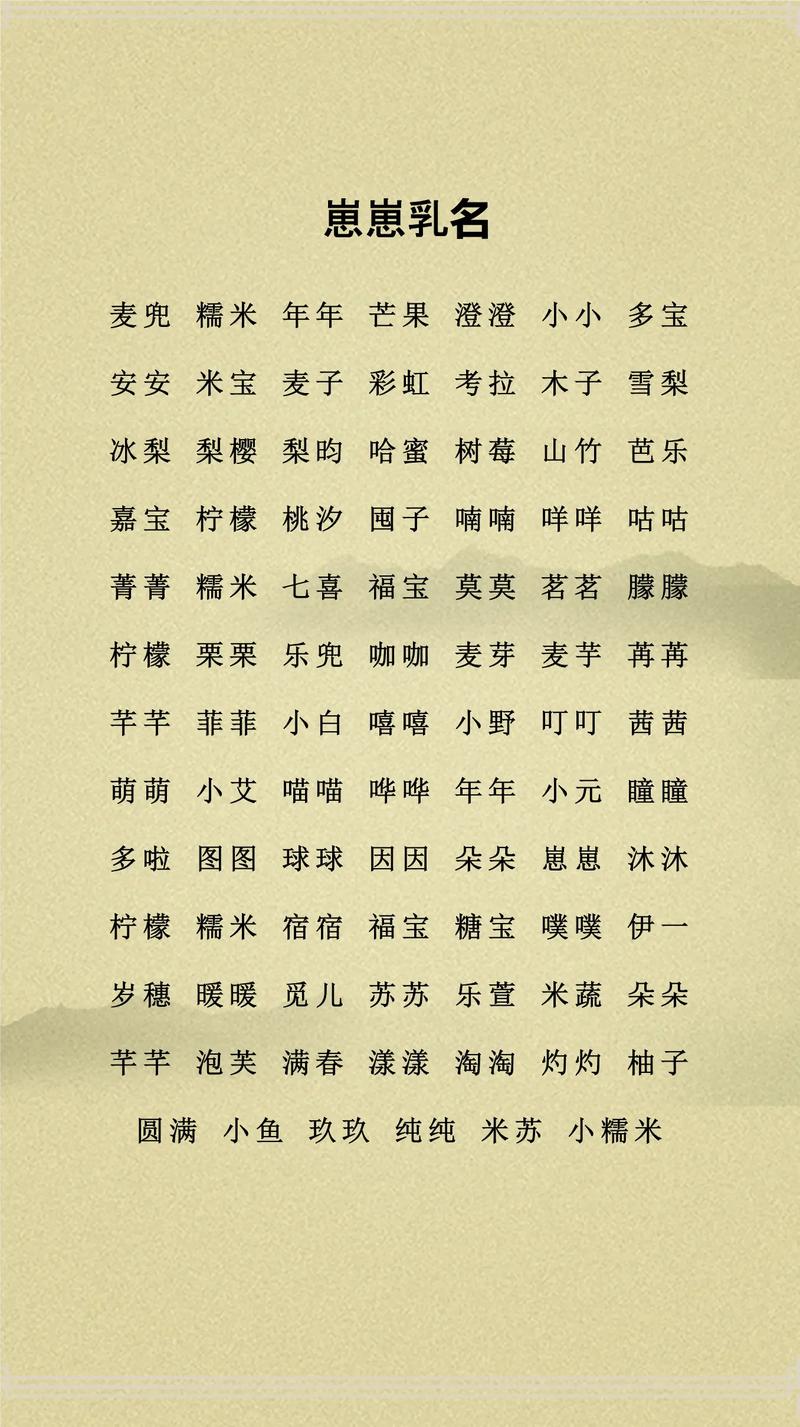 崽崽乳名
麦兜 糯米 年年 芒果 澄澄 小小 多宝
安安 米宝 麦子 彩虹 考拉 木子 雪梨
冰梨 梨樱 梨昀 哈蜜 树莓 山竹 芭乐
嘉宝 柠檬 桃汐 囤子 喃喃 咩咩 咕咕
菁菁 糯米 七喜 福宝 莫莫 茗茗 朦朦
柠檬 栗栗 乐兜 咖咖 麦芽 麦芋 苒苒
芊芊 菲菲 小白 嘻嘻 小野 叮叮 茜茜
萌萌 小艾 喵喵 哗哗 年年 小元 瞳瞳
多啦 图图 球球 因因 朵朵 崽崽 沐沐
柠檬 糯米 宿宿 福宝 糖宝 噗噗 伊一
岁穗 暖暖 觅儿 苏苏 乐萱 米蔬 朵朵
芊芊 泡芙 满春 漾漾 淘淘 灼灼 柚子
圆满 小鱼 玖玖 纯纯 米苏 小糯米